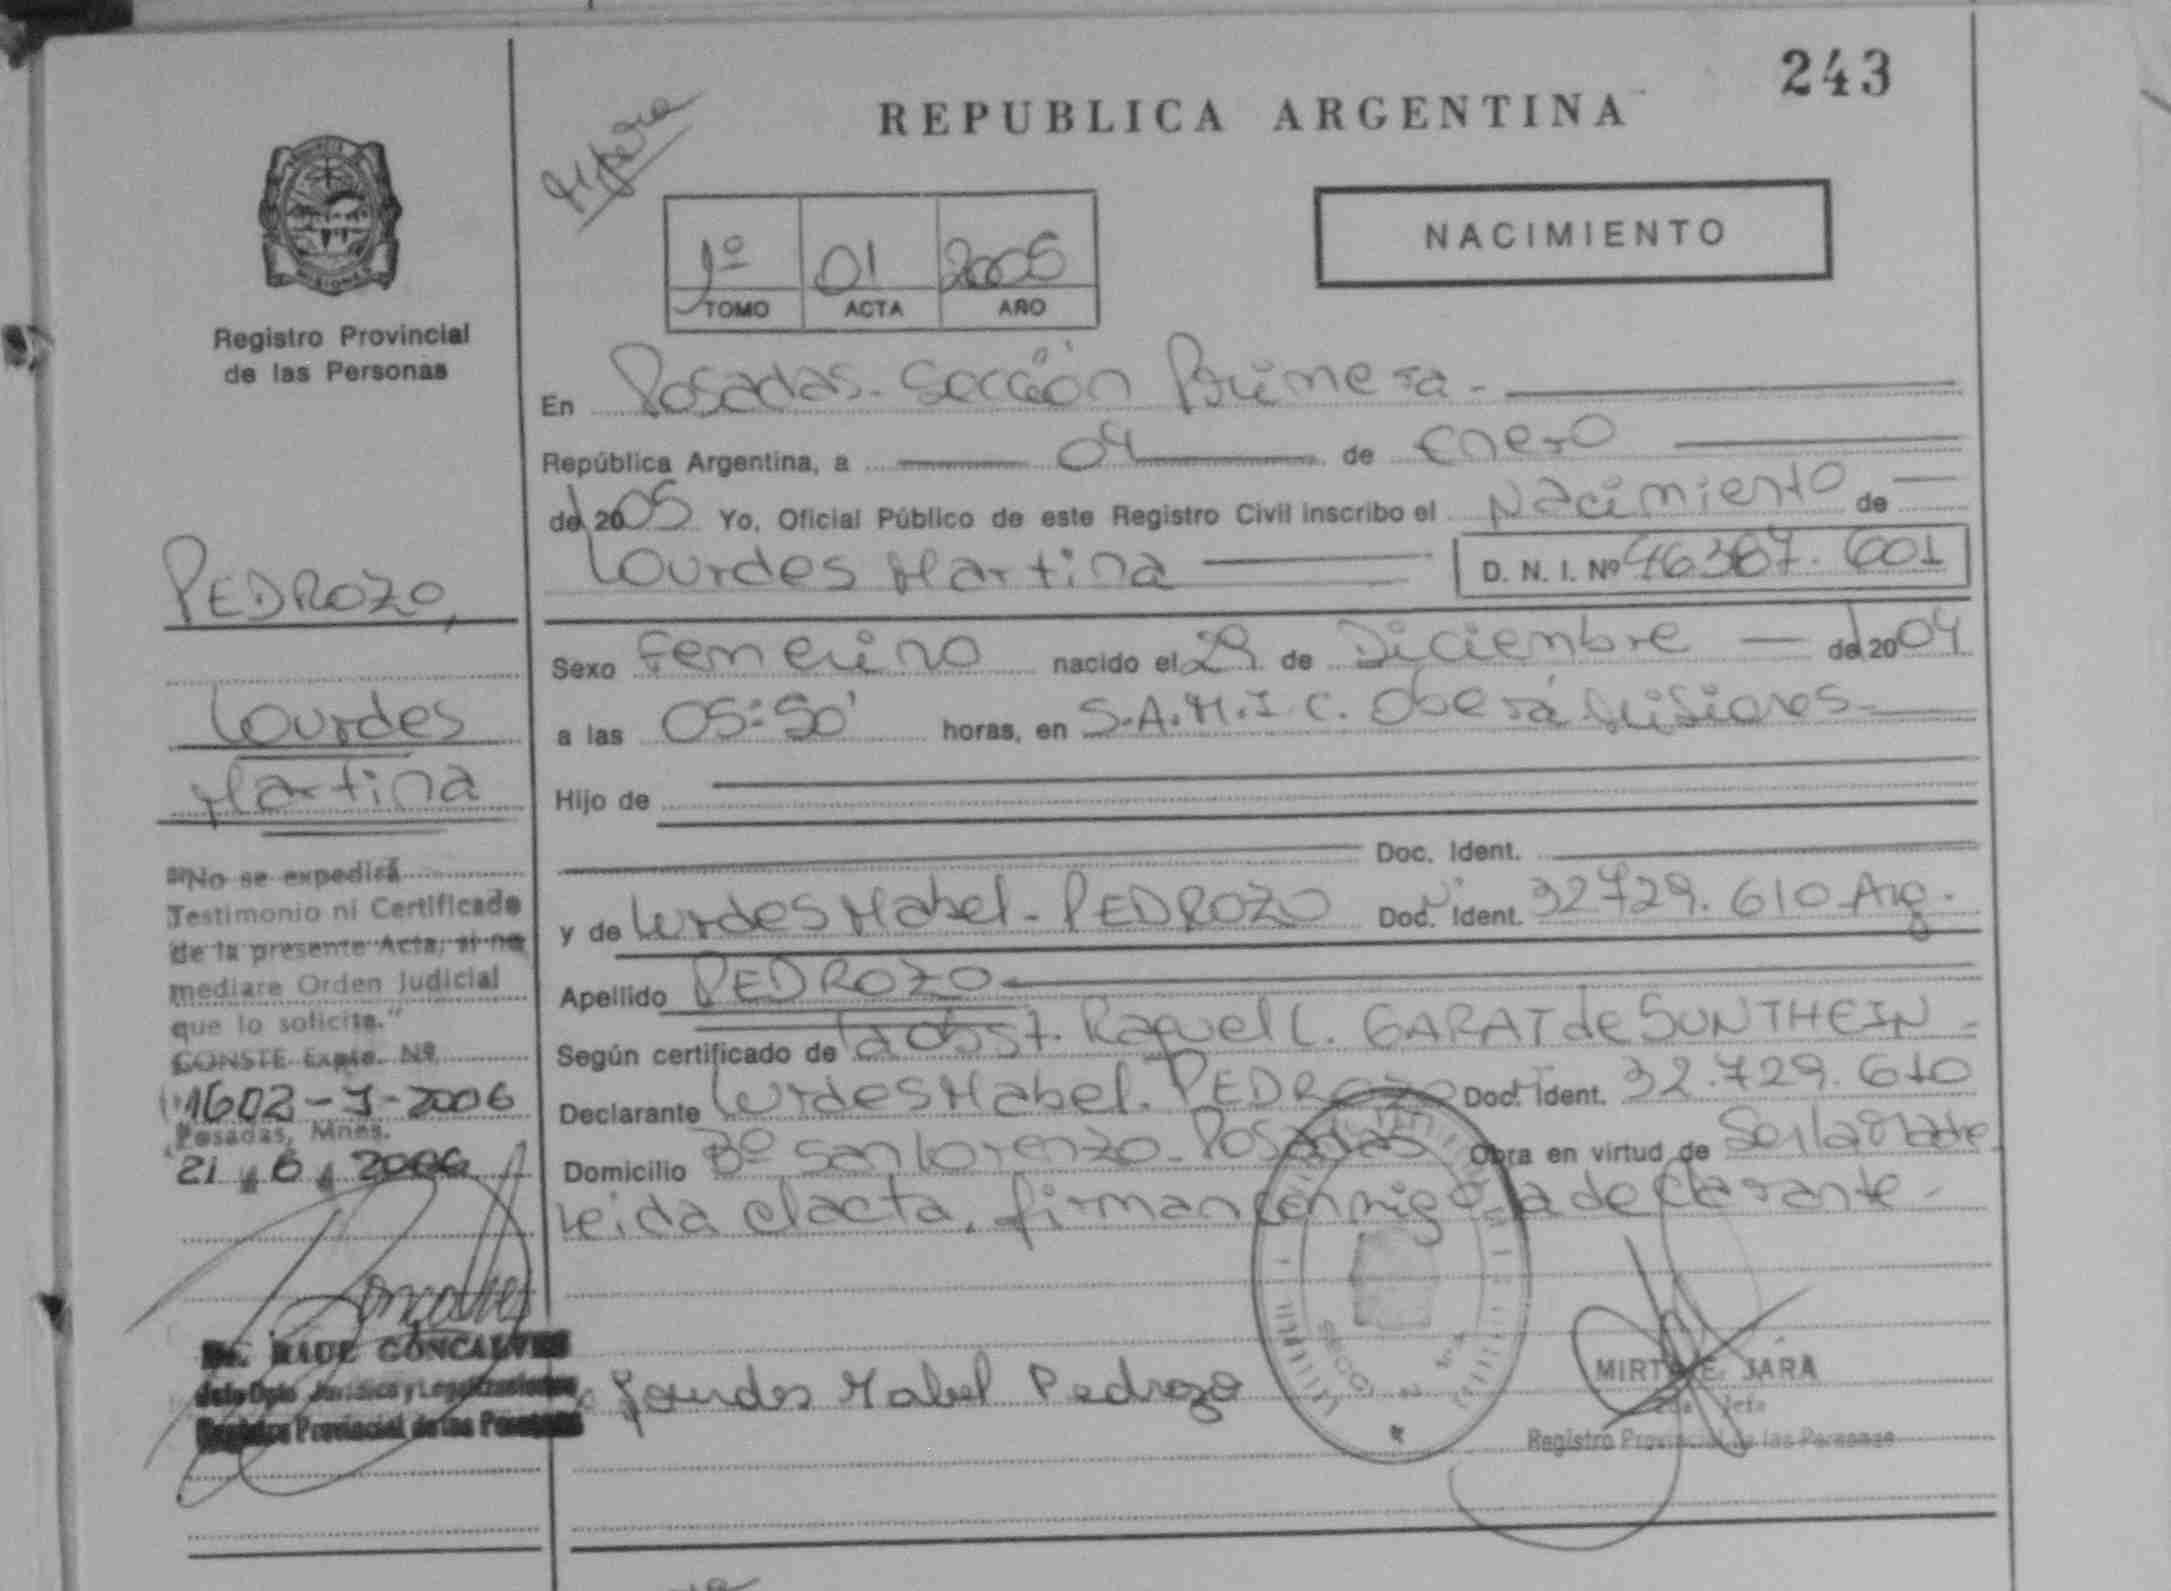 243
REPUBLICA ARGENTINA
NACIMIENTO
1º 01 2005
TOMO ACTA AÑO
Registro Provincial
de las Personas
En Posadas - Sección Primera -
República Argentina, a 04 de Enero
del 2005 Yo, Oficial Público de este Registro Civil inscribo el Nacimiento de
Lourdes Martina D. N. I. Nº 46387.601
Sexo Femenino nacido el 29 de Diciembre del 2004
a las 05:50' horas, en S.A.M.I.C. Oberá Misiones -
Hijo de
Doc. Ident.
y de Lurdes Mabel - PEDROZO Doc. Ident. 32729.610 Arg.
Apellido PEDROZO
Según certificado de la obst. Raquel L. GARAT de SUNTHEIN -
Declarante Lurdes Mabel. PEDROZO Doc. Ident. 32.729.610
Domicilio Bº San Lorenzo - Posadas Obra en virtud de Ser la Madre
Leida el acta, firman conmigo la declarante -
Lourdes Mabel Pedrozo
MIRTA E. JARA
2da Jefa
Registro Provincial de las Personas
PEDROZO,
Lourdes
Martina
"No se expedirá
Testimonio ni Certificado
de la presente Acta, si no
mediare Orden Judicial
que lo solicite."
CONSTE Expte. Nº
1602-J-2006
Posadas, Mnes.
21 6 2006
Dr. RAUL GONCALVES
Registro Provincial de las Personas